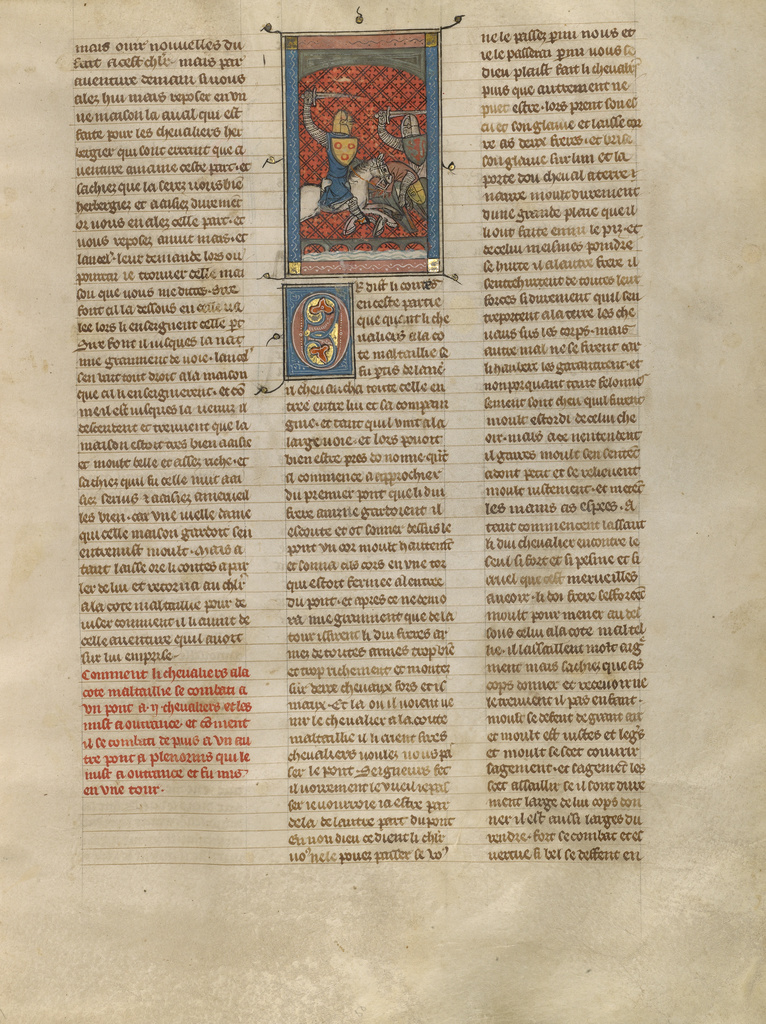 mais ouir nouuelles du
fait a cest chlr. mais par
auenture demain si vous
alez hui mais reposer en vn
ne maison la aual qui est
faite pour les cheualiers her
bergier qui sont errant que a
uenture amaine ceste part. et
sachiez que la serez vous bien
herbergiez et aaisiez durement
or vous en alez celle part. et
vous reposez anuit mais. et
lancel. leur demande lors ou
pourrai ie trouuer celle mai
son que vous me dittes. Sire
font cil la dessous en celle va
lee lors li enseignent celle pt
Sire font il iusques la na
mie granment de uoie. lancel
sen vait tout droit a la maison
que cil li enseignerent. et con
me il est iusques la uenuz il
descendent et treuuent que la
maison estoit tres bien aaisie
et moult belle et assez riche. et
sachiez quil fu celle nuit aai
siez seruis et aaisiez a merueil
les bien. car vne uielle dame
qui celle maison gardoit sen
entremist moult. Mais a
tant laisse ore li contes a par
ler de lui et retorna au chlr
a la cote maltaillie pour de
uiser comment il li auint de
celle auenture quil auoit
sur lui emprise.
Comment li cheualiers a la
cote maltaillie se combati a
vn pont a .ij. cheualiers et les
mist a outrance. et coment
il se combati de puis a vn au
tre pont a plenorins qui le
mist a outrance et fu mis
en vne tour.
O R dist li contes
en ceste partie
que quant li che
ualiers a la co
te maltaillie se
fu partis de lanc
il cheuaucha toute celle en
tree entre lui et sa compain
gnie. et tant quil vint a la
large uoie. et lors pouoit
bien estre pres de nonne. quant
il commence a approchier
du premier pont que li dui
frere auirie gardoient il
escoute et ot sonner dessus le
pont vn cor moult hautement
et sonna cils cors en vne tor
qui estoit fermee a lentree
du pont. et apres ce ne demo
ra mie granment que de la
tour issirent li dui freres ar
mez de toutes armes trop bien
et trop richement et montez
sur deux cheuaux fors et is
niaux. Et la ou il uoient ue
nir le cheualier a la coute
maltaillie il li crient sires
cheualiers voulez vous pas
ser le pont. Seigneurs fet
il uoirement le vueil ie pas
ser ie uourroie ia estre par
dela de lautre part du pont
En non dieu ce dient li chlr
uous ne le pouez passer se vous
ne le passez parmi nous et
ie le passerai parmi vous se
dieu plaist fait li cheualier
puis que autrement ne
puet estre. lors prent son es
cu et son glaiue et laisse cor
re as deux freres. et brise
son glaiue sur lun et la
porte dou cheual a terre et
naure moult durement
dune grande plaie que il
li ont faite enmi le piz. et
de celui meismes poindre
se hurte il a lautre frere il
sentrehurtent de toutes leur
forces si durement quil sen
treportent a la terre les che
uaus sus les corps. mais
autre mal ne se firent car
li haubert les garantirent. et
nonporquant tant felonneu
sement sont cheu quil furent
moult estordi de celui che
oir. mais cil ne nentendent
il gaires moult sen sentent
adont petit et se relieuent
moult uistement. et metent
les mains as espees. A
tant commencent lassaut
li dui cheualier encontre le
seul si fort et si pesme et si
cruel que cest merueilles
a ueoir. li doi frere sefforcent
moult pour mener au de
sous celui a la cote mal tel
lie. il lassaillent molt aigre
ment mais sachiez que as
cops donner et receuoir ne
le treuuent il pas enfant.
moult se defent de grant air
et moult est uistes et legiers
et moult se scet couurir
sagement. et sagement les
scet assaillir se il sont dure
ment large de lui cops don
ner il est aussi larges du
rendre. fort se combat et es
uertue si bel se deffent en